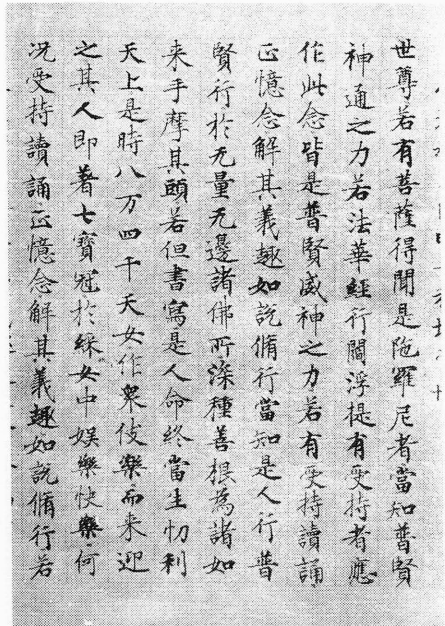 世尊若有菩薩得聞是陁羅尼者當知普賢
神通之力若法華經行閻浮提有受持者應
作此念皆是普賢威神之力若有受持讀誦
正憶念解其義趣如說脩行當知是人行普
賢行於无量无邊諸佛所深種善根為諸如
来手摩其頭若但書寫是人命終當生忉利
天上是時八万四千天女作衆伎樂而来迎
之其人即著七寶冠於綵女中娱樂快樂何
况受持讀誦正憶念解其義趣如說脩行若